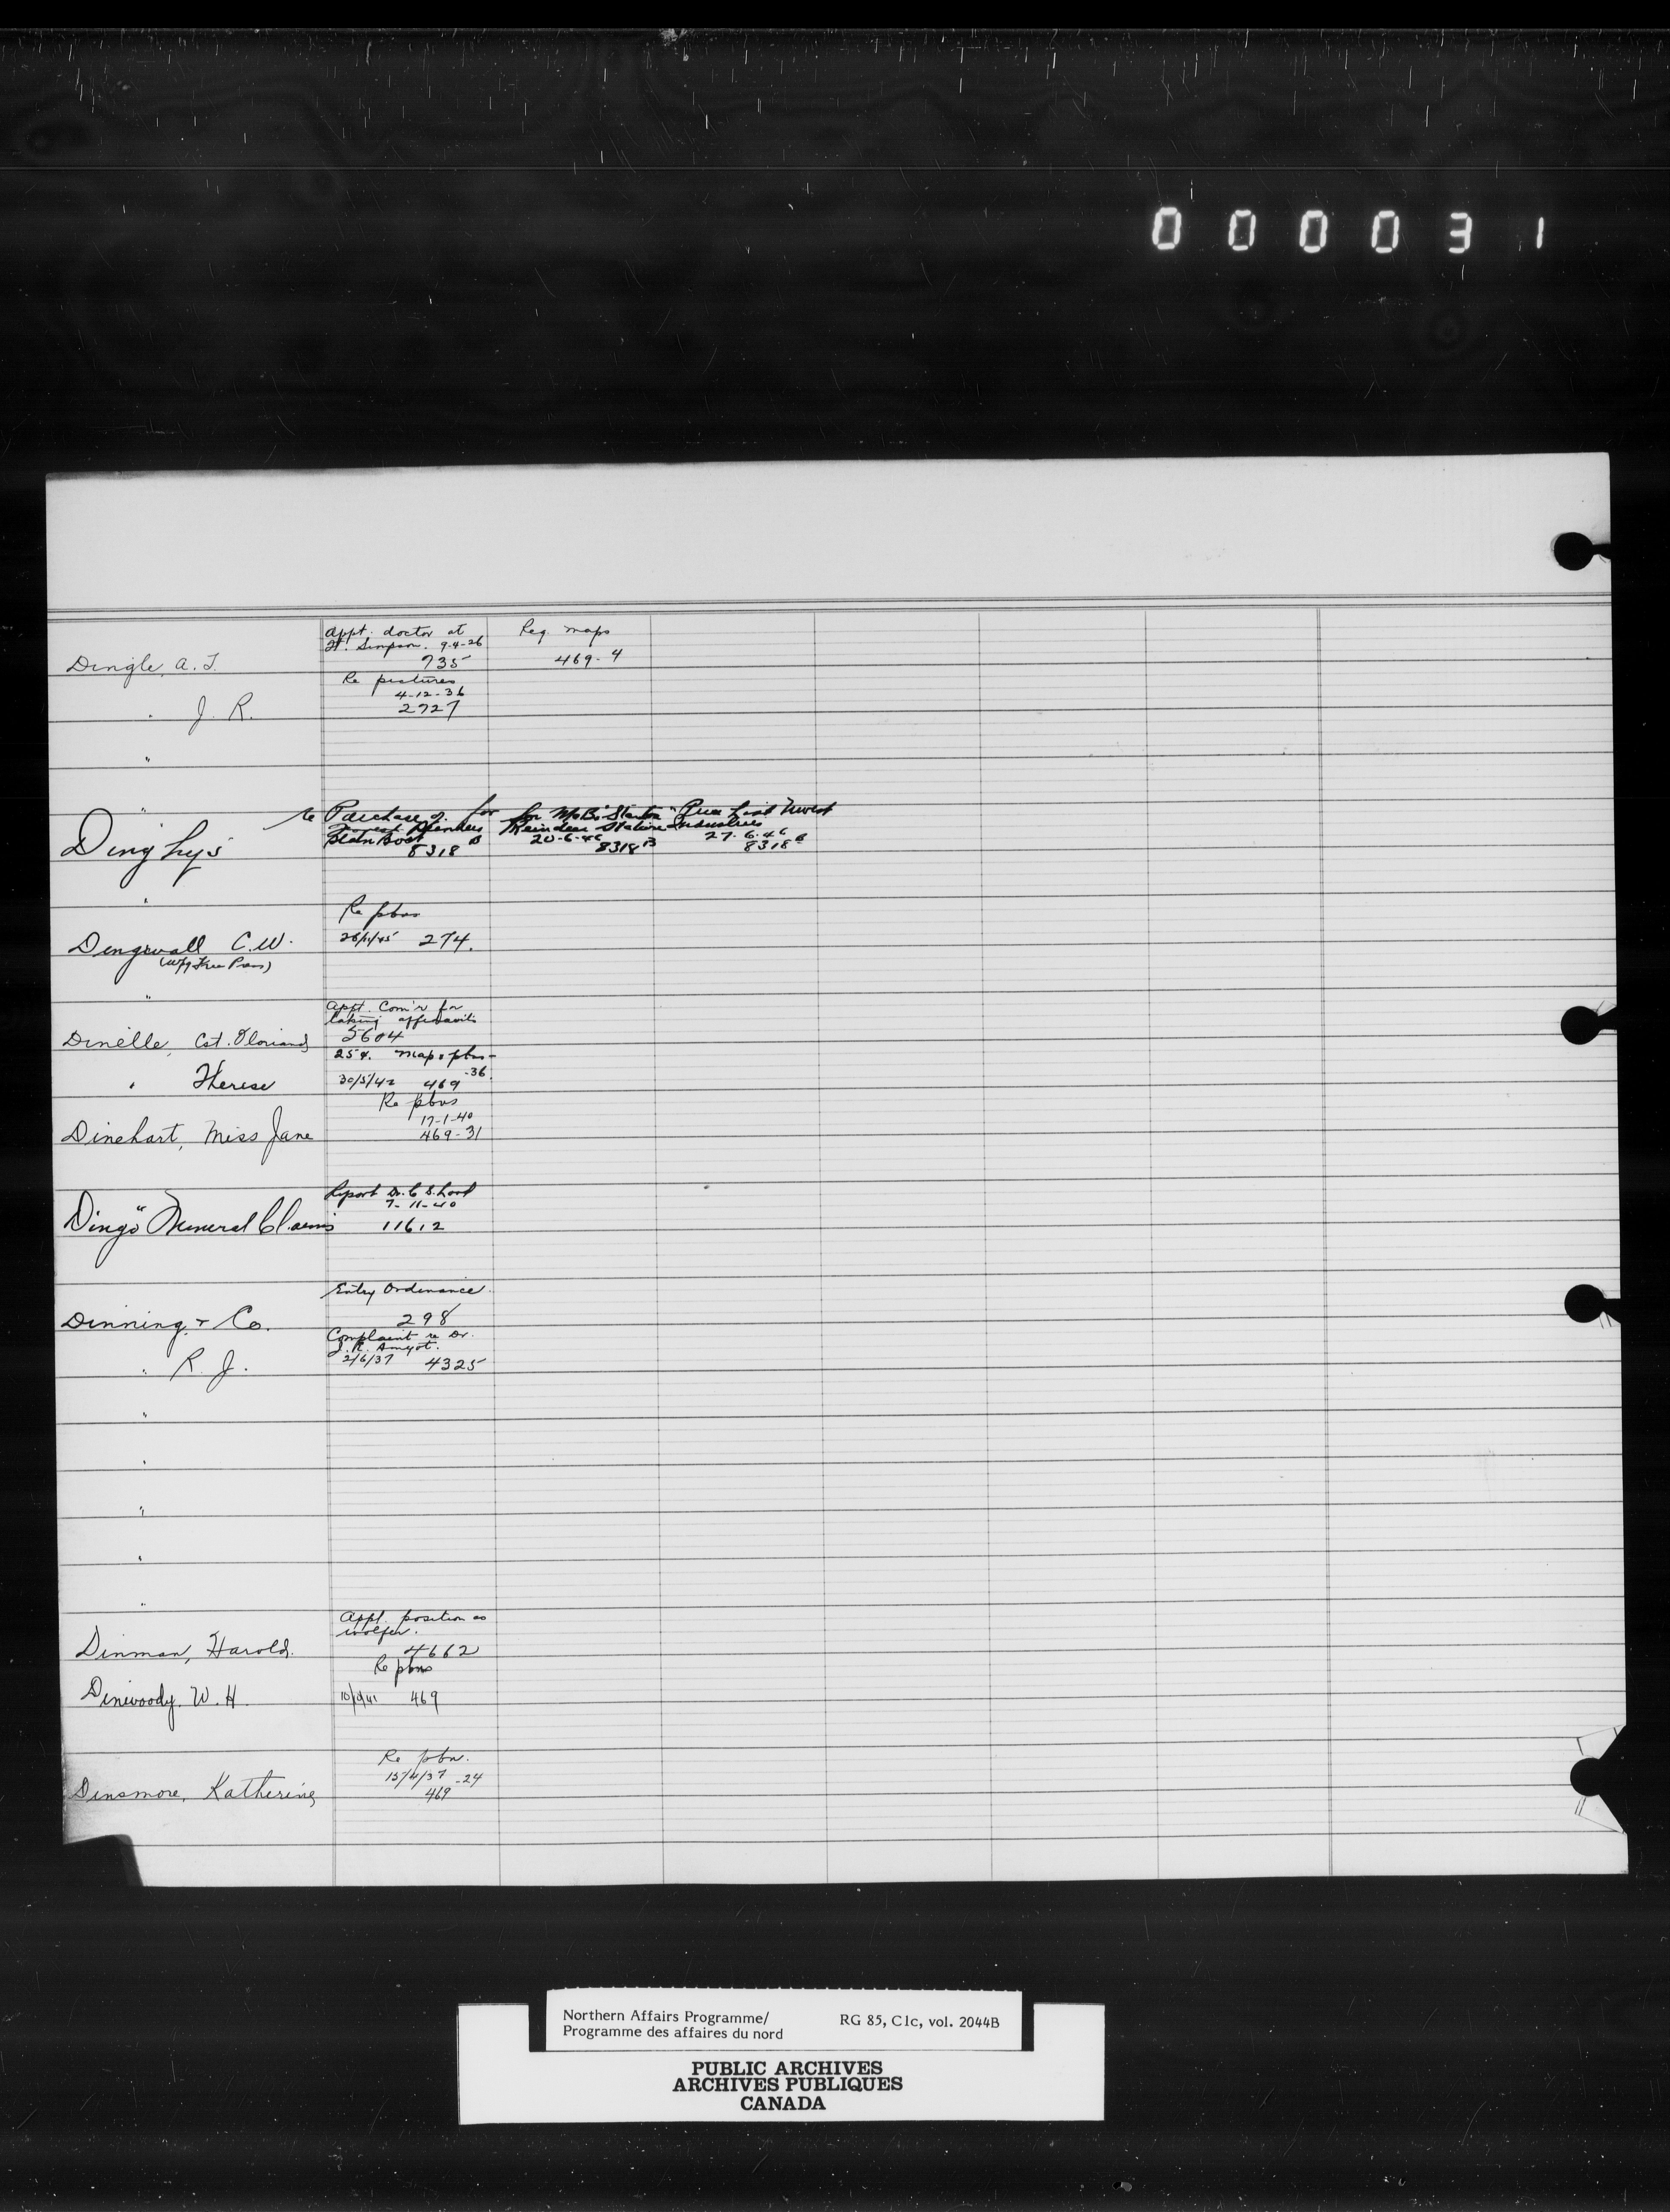 000031
Appt. doctor at
Ft. Simpson. 9-4-26
Dingle, A. T. 735
Req. maps
469-4
Re pictures
4-12-36
" J. R. 2727
"
"
Dinghys
re Purchase of for
8318 B
for
Reindeer Station
20-6-46
8318 B
Industries
27-6-46
8318 B
"
Re pbns
Dingwall C.W. 28/11/45 274.
(Wpg Free Press)
"
Appt. Com'r for
taking affidavits
Dinelle, Cst. Floriand 5604
25¢. map & pbns-
" Therese 30/5/42 469-36.
Re pbns
17-1-40
Dinehart, Miss Jane 469-31
Report Dr. C. S. Lord
7-11-40
"Dingo" Mineral Claims 11612
Entry Ordinance.
Dinning & Co. 298
Complaint re Dr.
J. R. Amyot.
" R. J. 2/6/37 4325
"
"
"
"
"
Appl. position as
wolfer.
Dinman, Harold. 4662
Re pbns
Dinwoody, W. H. 469
Re pbn.
15/4/37
Dinsmore, Katherine 469-24
Northern Affairs Programme/
Programme des affaires du nord
RG 85, C1c, vol. 2044B
PUBLIC ARCHIVES
ARCHIVES PUBLIQUES
CANADA